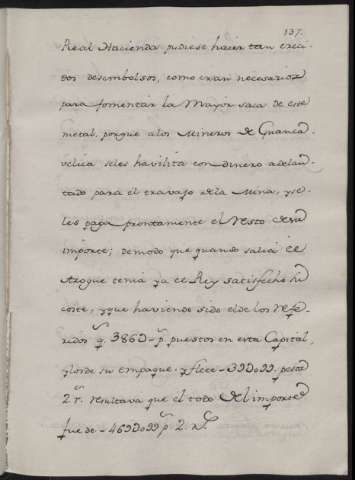 137.
Real Hacienda pudiese hacer tan creci-
dos desembolsos, como eran necesarios
para fomentar la Mayor saca de este
metal, porque alos Mineros de Guanca-
velica seles havilita con dinero adelan-
tado para el travajo dela Mina, y se
les paga prontamente el resto desu
importe; demodo que quando salia el
Azogue tenia ya el Rey satisfecho su
coste, y que haviendo sido el de los refe-
ridos q.s 386 puestos en esta Capital,
y los de su empaque y flete pesos
2 r.s resultava que el todo del importe
fue de 2. r.s